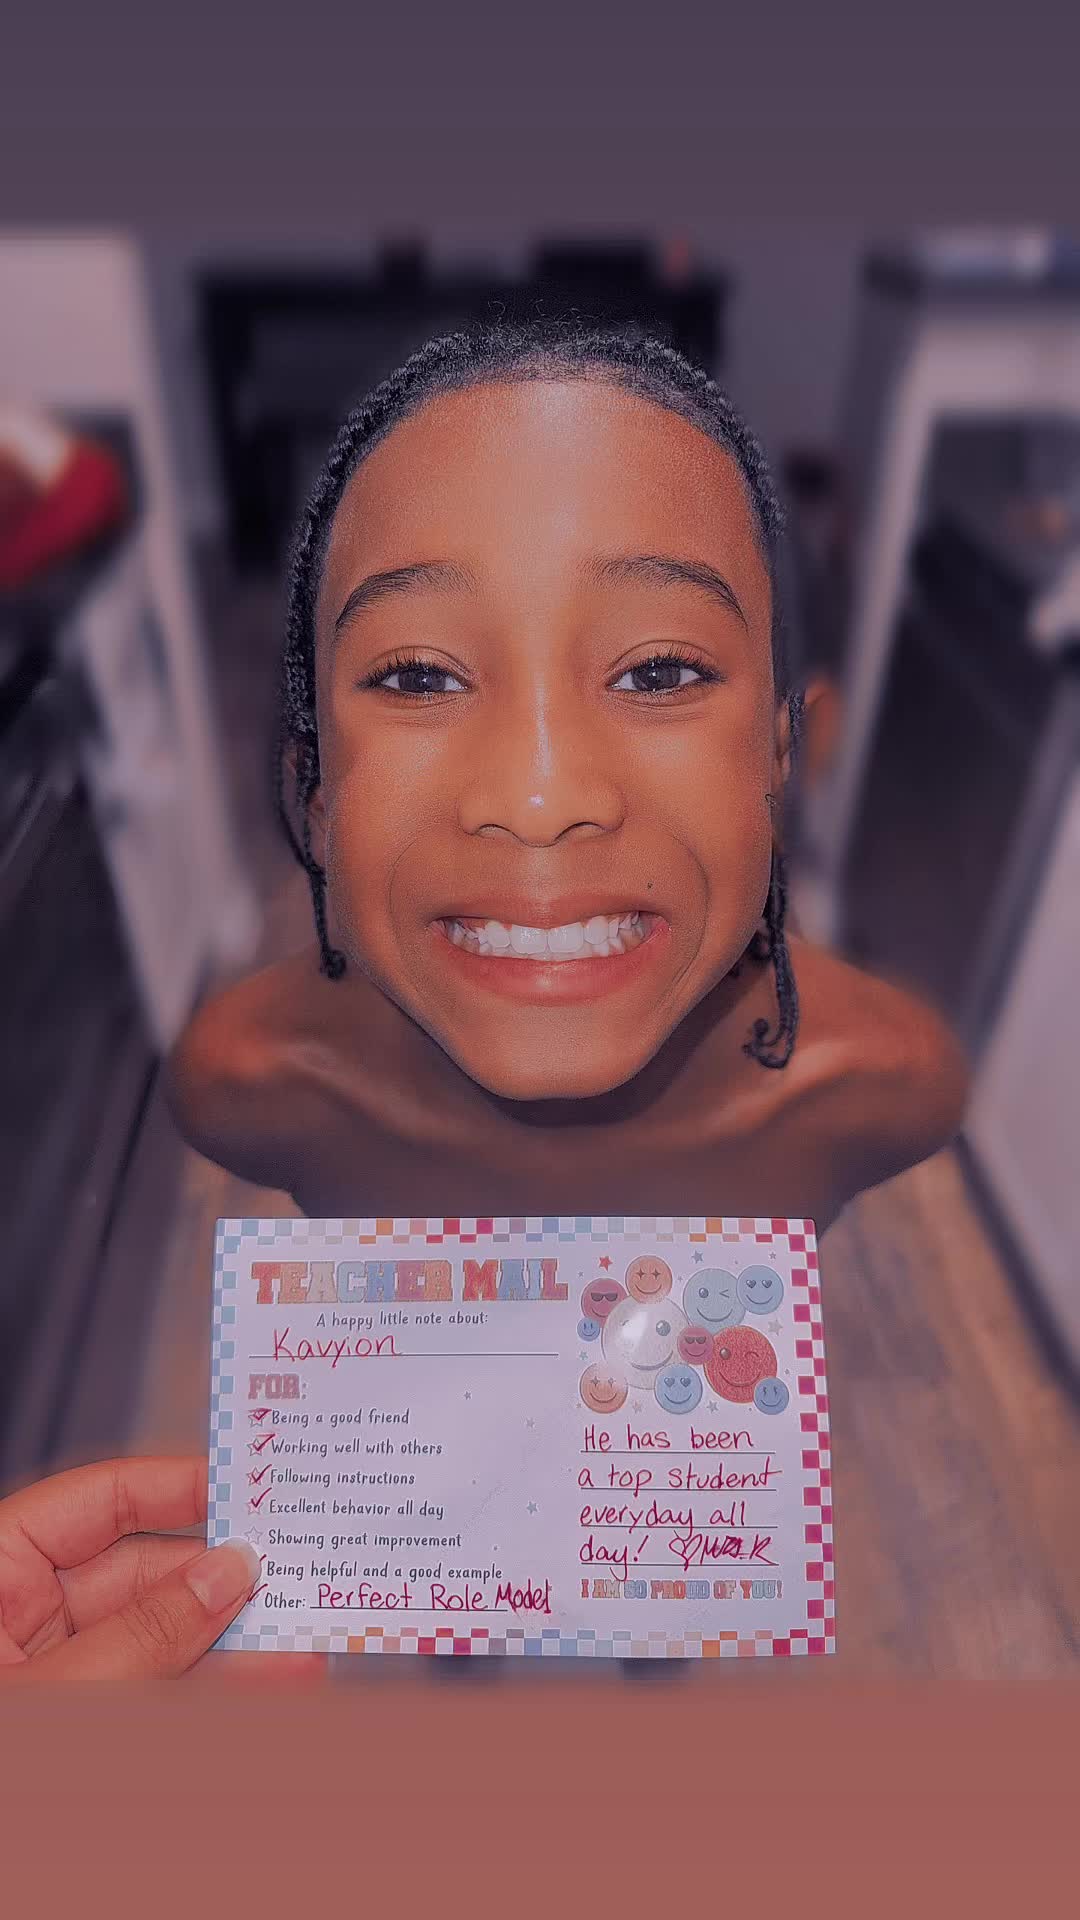 TEACHER MAIL
A happy little note about:
Kavyion
FOR:
Being a good friend
Working well with others
Following instructions
Excellent behavior all day
Showing great improvement
Being helpful and a good example
Other: Perfect Role Model
He has been
a top student
everyday all
day! ♡ Mrs. K
I AM SO PROUD OF YOU!